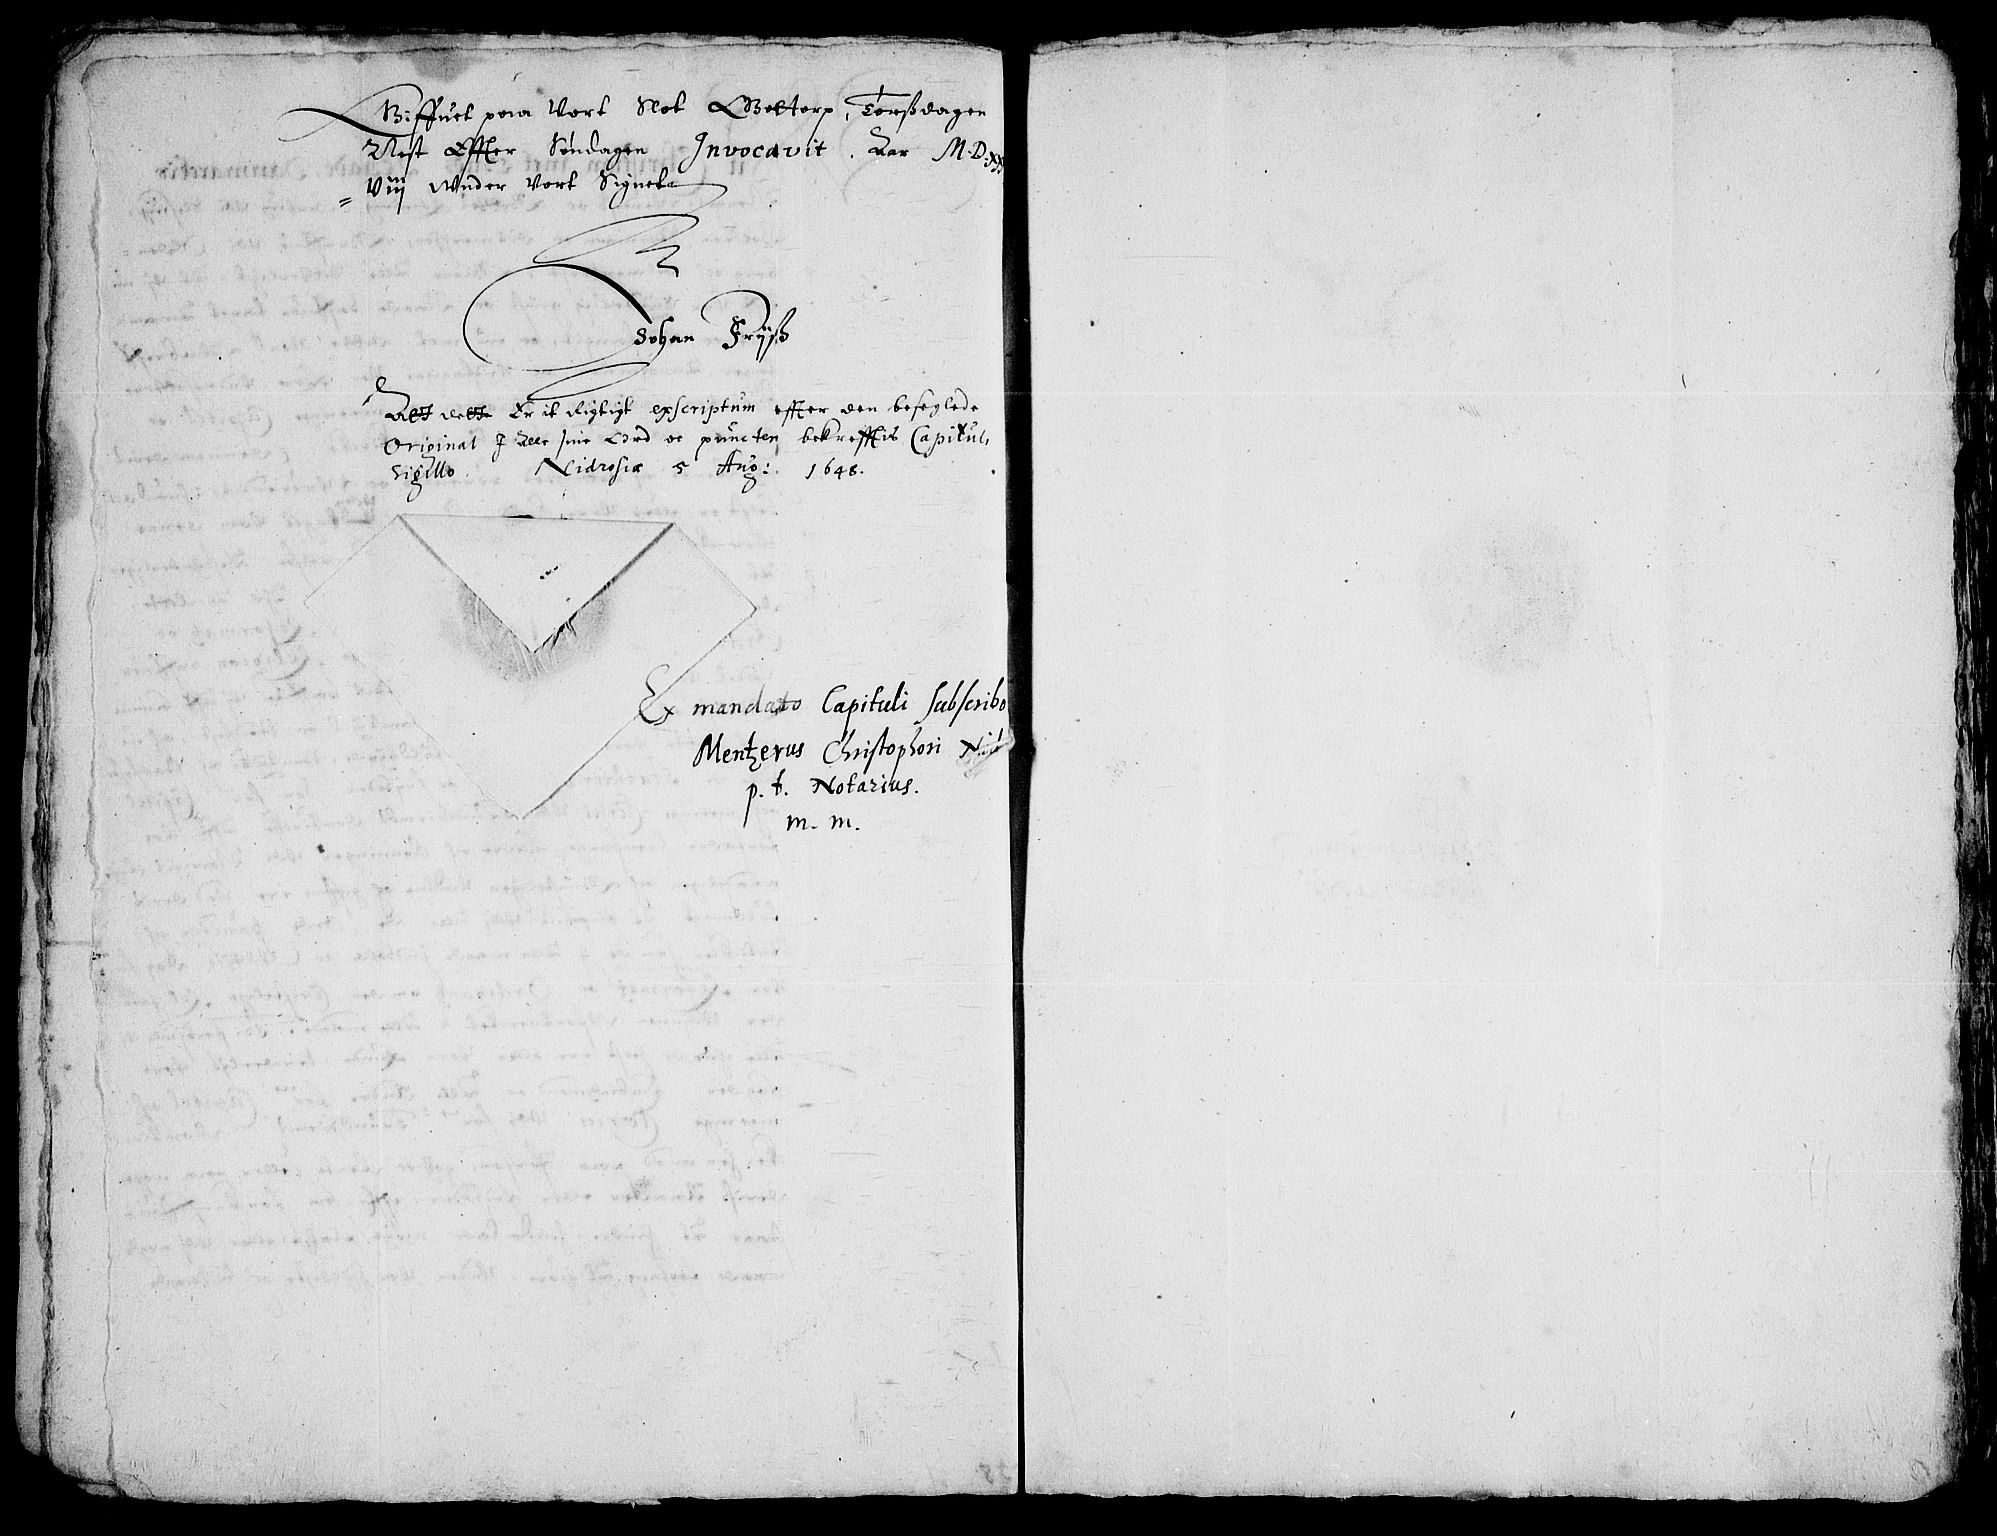 Giffuet paa Vort Slot Gottorp, Torßdagen
Nest Effter Søndagen Invocavit. Aar M.D.xx
= Viij Wnder Vort Signet
Johan Frijß
Att dette Er it Rigtigt exscriptum effter den beseglede
Original J Alle sine Ord oc puncten bekrefftis Capituli
Sigillo. Nidrosiæ 5 Aug: 1648.
Ex mandato Capituli subscribo
Mentzerus Christophori
p. t. Notarius.
m. m.